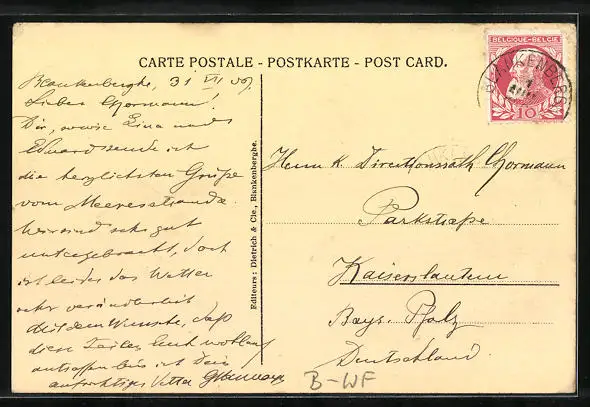 CARTE POSTALE - POSTKARTE - POST CARD.
BELGIQUE-BELGIE
BLANKENBERGHE
10
Blankenberghe, 31 VII 09
Lieber Hormann!
Dir, sowie Lina und
Eduard sende ich
die herzlichsten Grüße
vom Meeresstrande.
sind sehr gut
untergebracht, doch
ist leider das Wetter
sehr veränderlich
Mit dem Wunsche, daß
diese Zeilen Euch wohlauf
antreffen bin ich Dein
aufrichtiger Vetter
Editeurs: Dietrich & Cie., Blankenberghe.
Herrn K. Direktionsrath Hormann
Parkstraße
Kaiserslautern
Bayr. Pfalz
Deutschland.
B-WF